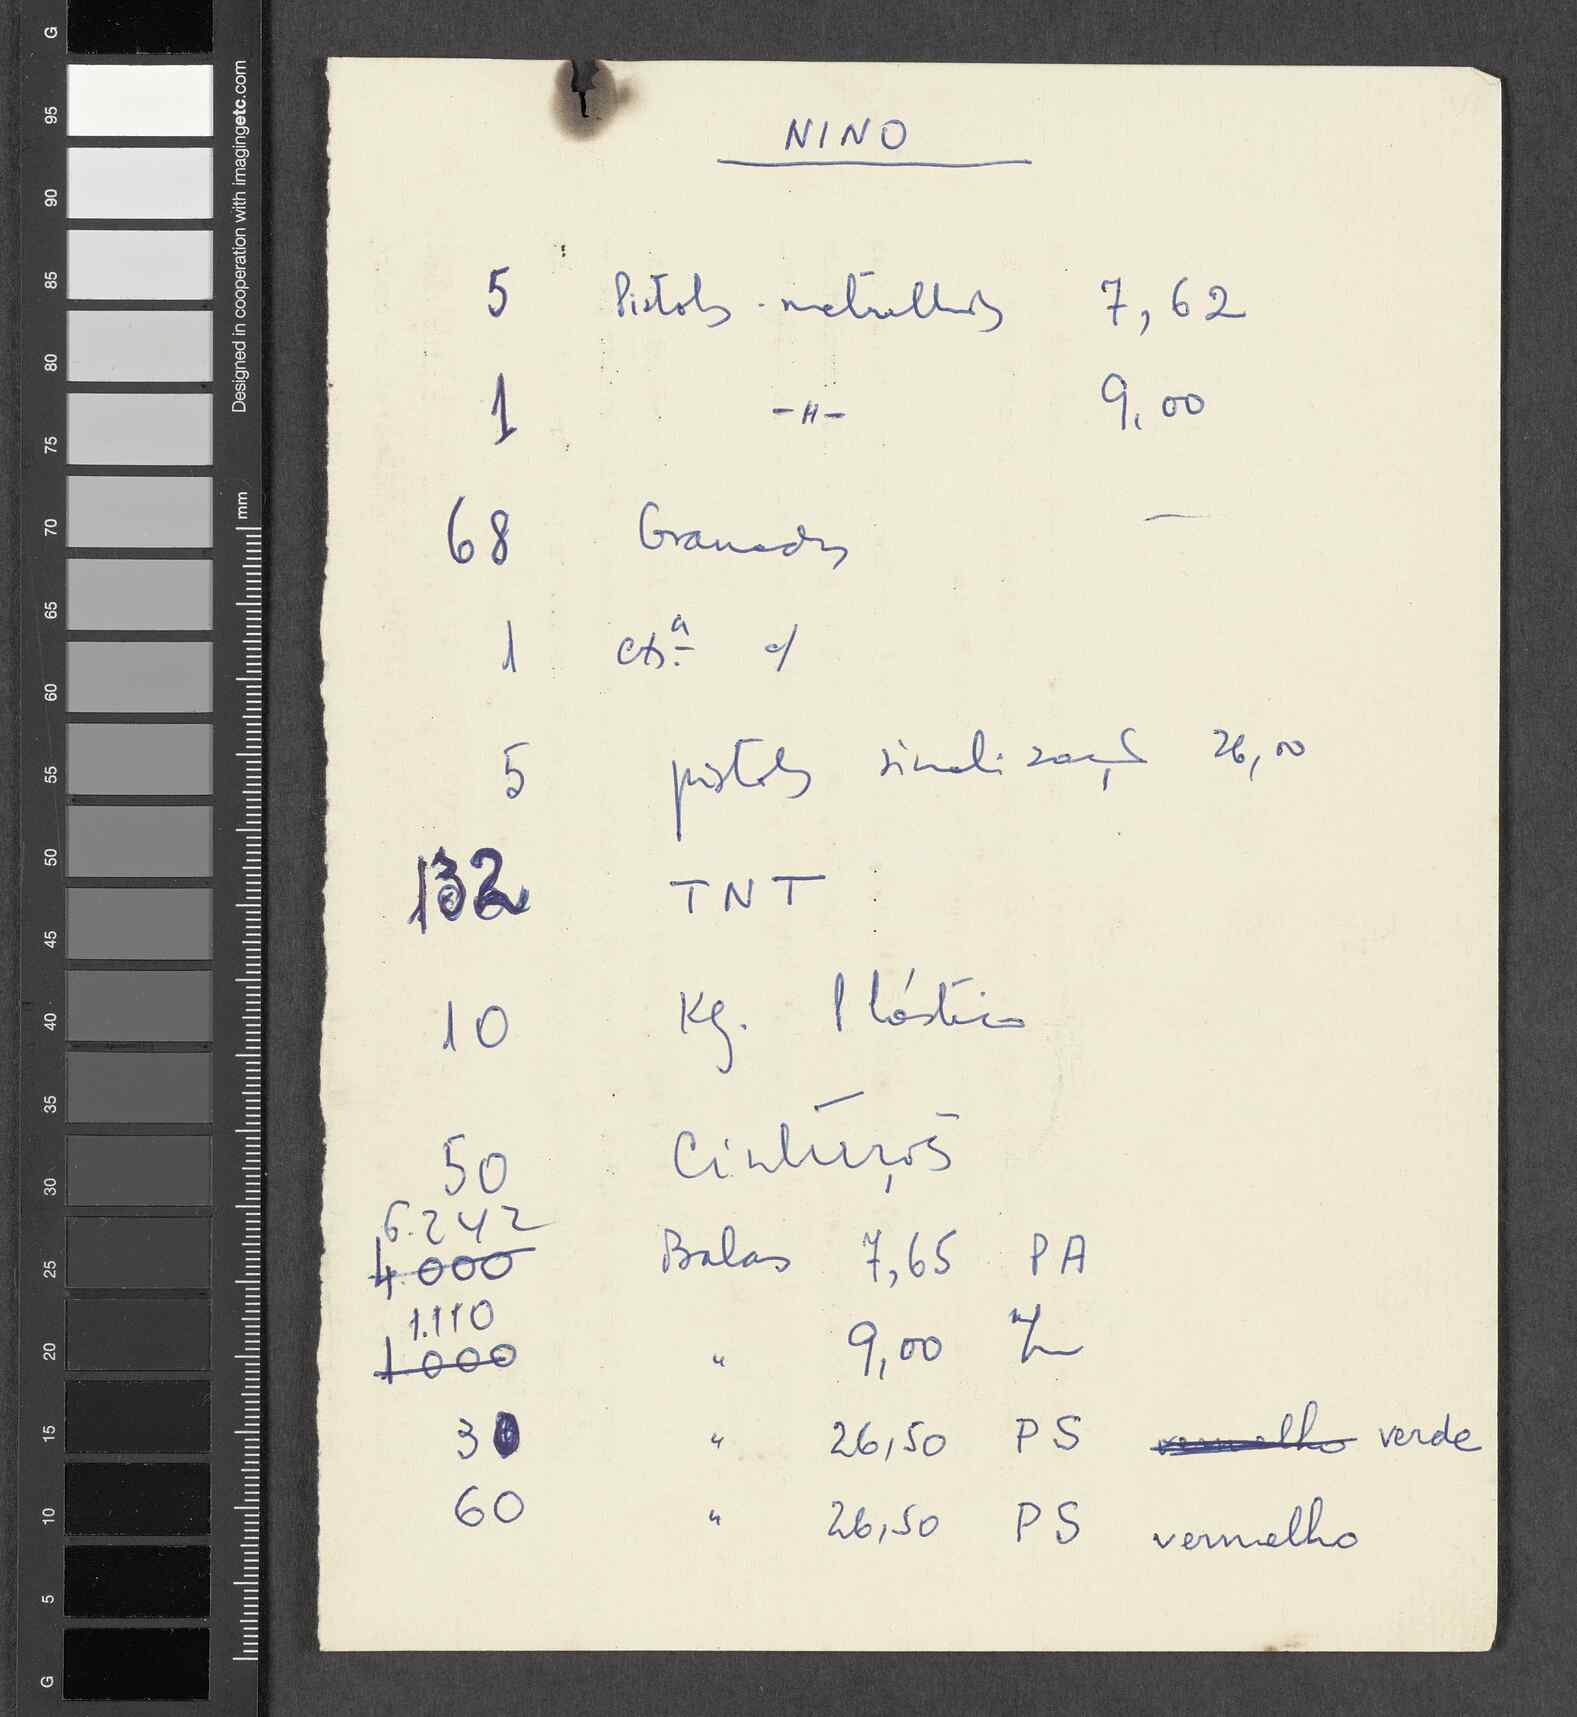 NINO
5 Pistolas-metralhas 7,62
1 -"- 9,00
68 Granadas —
1 cxª c/
5 pistolas sinalização 26,00
132 TNT
10 Kg. Plástico
50 Cinturções
6.242
4.000 Balas 7,65 PA
1.110
1000 " 9,00 m/m
30 " 26,50 PS vermelho verde
60 " 26,50 PS vermelho
Designed in cooperation with imagingetc.com
mm
G
95
90
85
80
75
70
65
60
55
50
45
40
35
30
25
20
15
10
5
G